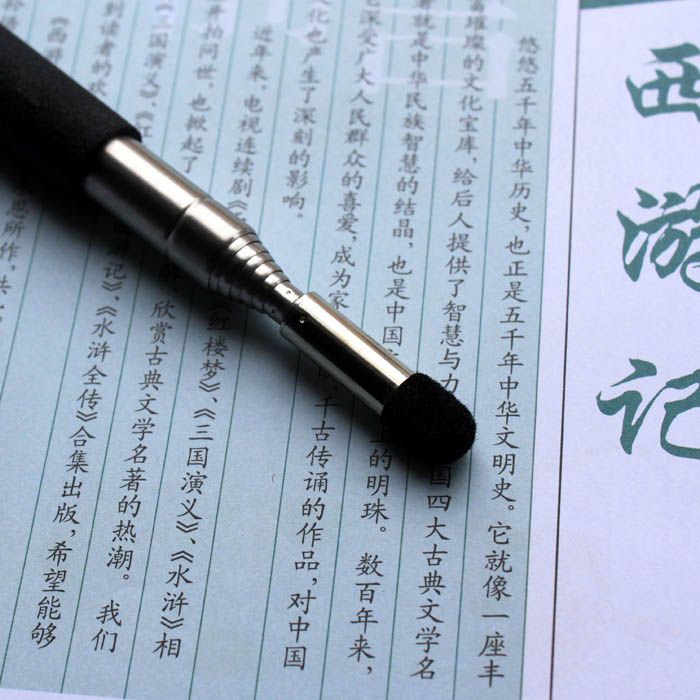 西游记
悠悠五千年中华历史,也正是五千年中华文明史。它就像一座丰
富璀璨的文化宝库,给后人提供了智慧与力 国四大古典文学名
著就是中华民族智慧的结晶,也是中国 上的明珠。数百年来,
它深受广大人民群众的喜爱,成为家 千古传诵的作品,对中国
文化也产生了深刻的影响。
近年来,电视连续剧《 《红楼梦》、《三国演义》、《水浒》相
开拍问世,也掀起了 欣赏古典文学名著的热潮。我们
《三国演义》、《红 游记》、《水浒全传》合集出版,希望能够
到读者的欢
《西 所作,共